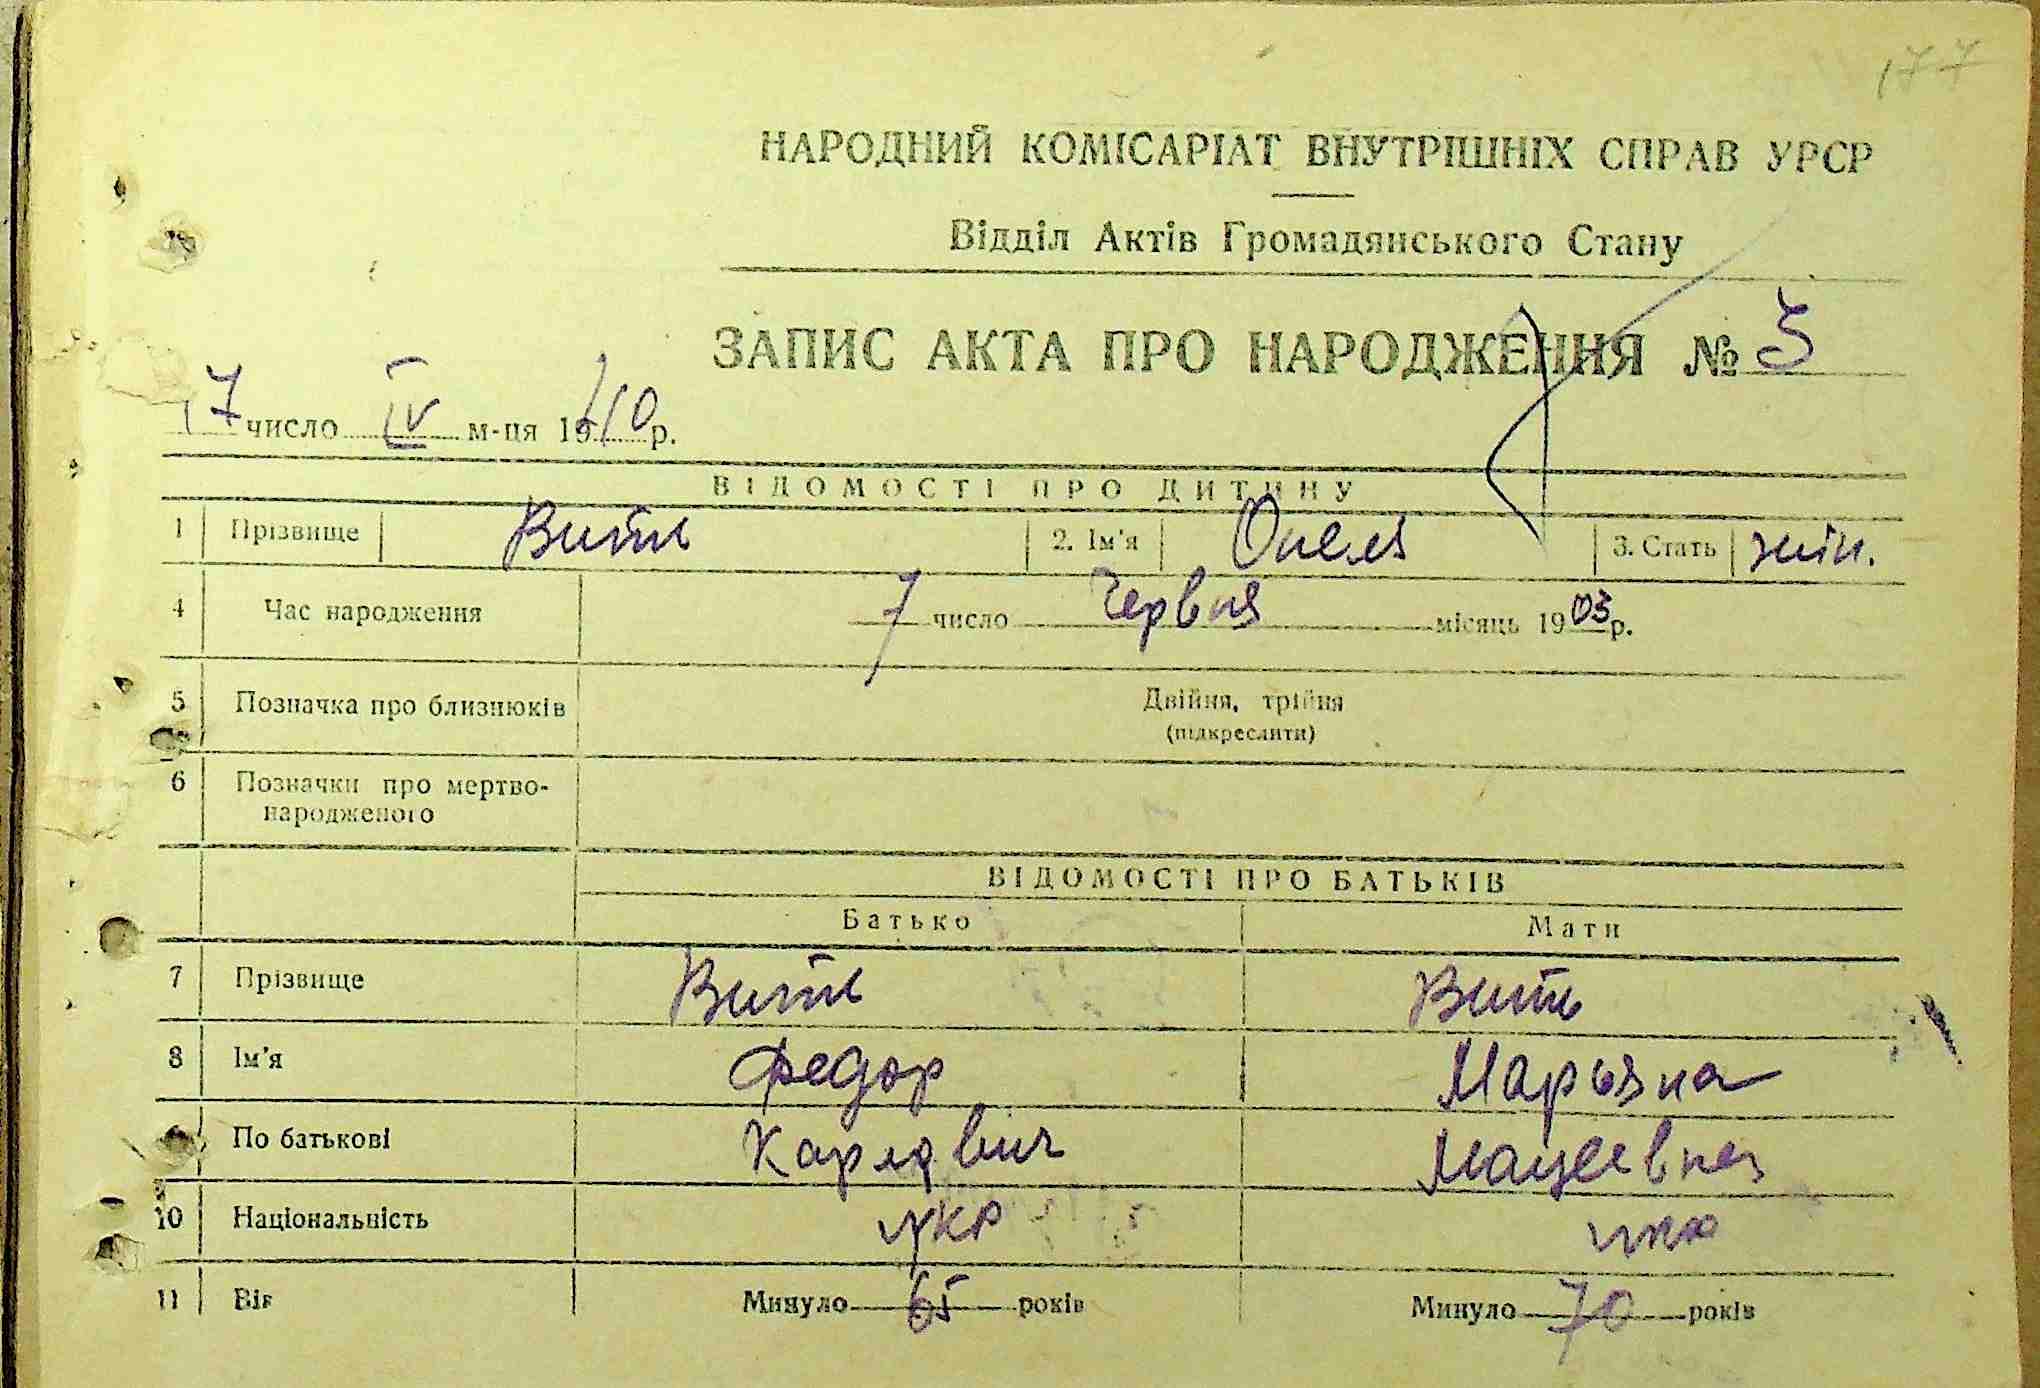 177
НАРОДНИЙ КОМІСАРІАТ ВНУТРІШНІХ СПРАВ УРСР
Відділ Актів Громадянського Стану
ЗАПИС АКТА ПРО НАРОДЖЕННЯ № 5
17 число IV м-ця 1940 р.
ВІДОМОСТІ ПРО ДИТИНУ
1 Прізвище Вить 2. Ім'я 3. Стать жін.
4 Час народження 7 число Червня місяць 1903 р.
5 Позначка про близнюків Двійня, трійня
(підкреслити)
6 Позначки про мертво-
народженого
ВІДОМОСТІ ПРО БАТЬКІВ
Батько Мати
7 Прізвище Вить Вить
8 Ім'я Федор Марьяна
9 По батькові Карлович Мацеевна
10 Національність укр укр
11 Вік Минуло 65 років Минуло 70 років